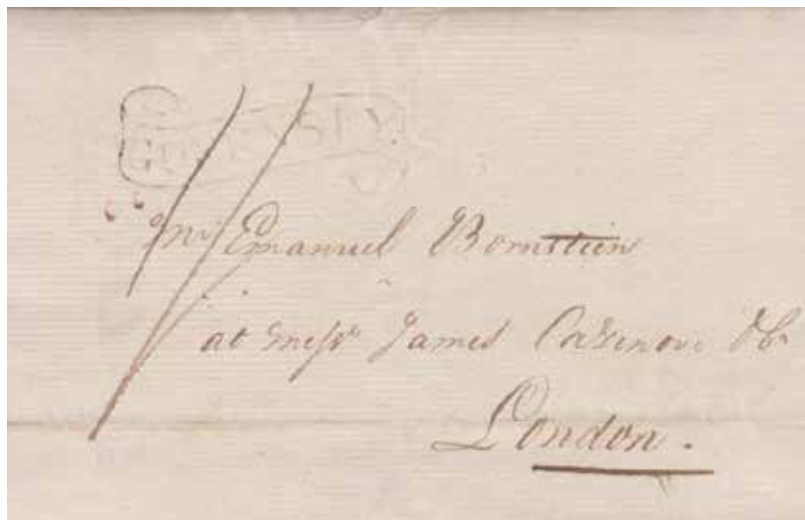 GUERNSEY
Mr Emanuel Bornstien
at Messrs James Cazenove &Co
London.